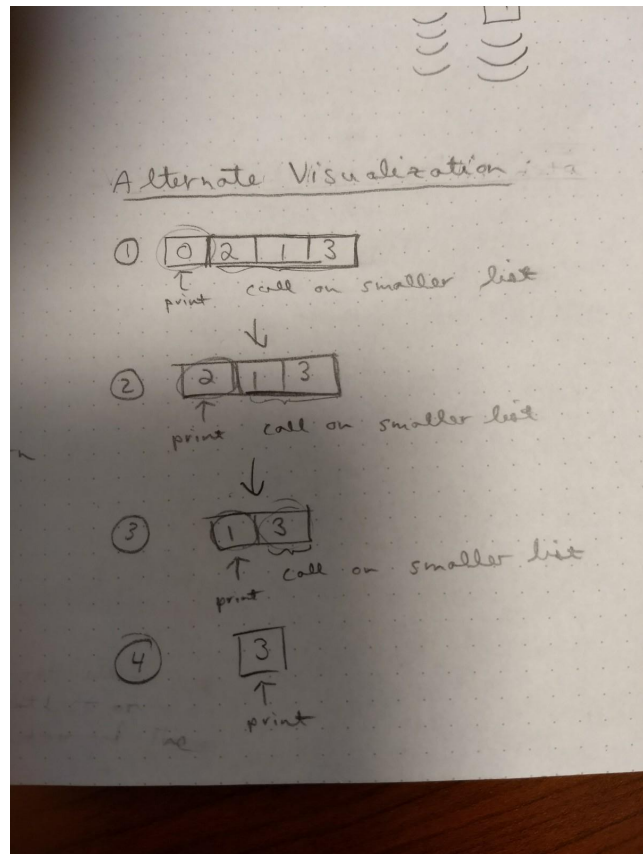 Alternate Visualization
① 0 2 1 3
print call on smaller list
② 2 1 3
print call on smaller list
③ 1 3
print call on smaller list
④ 3
print